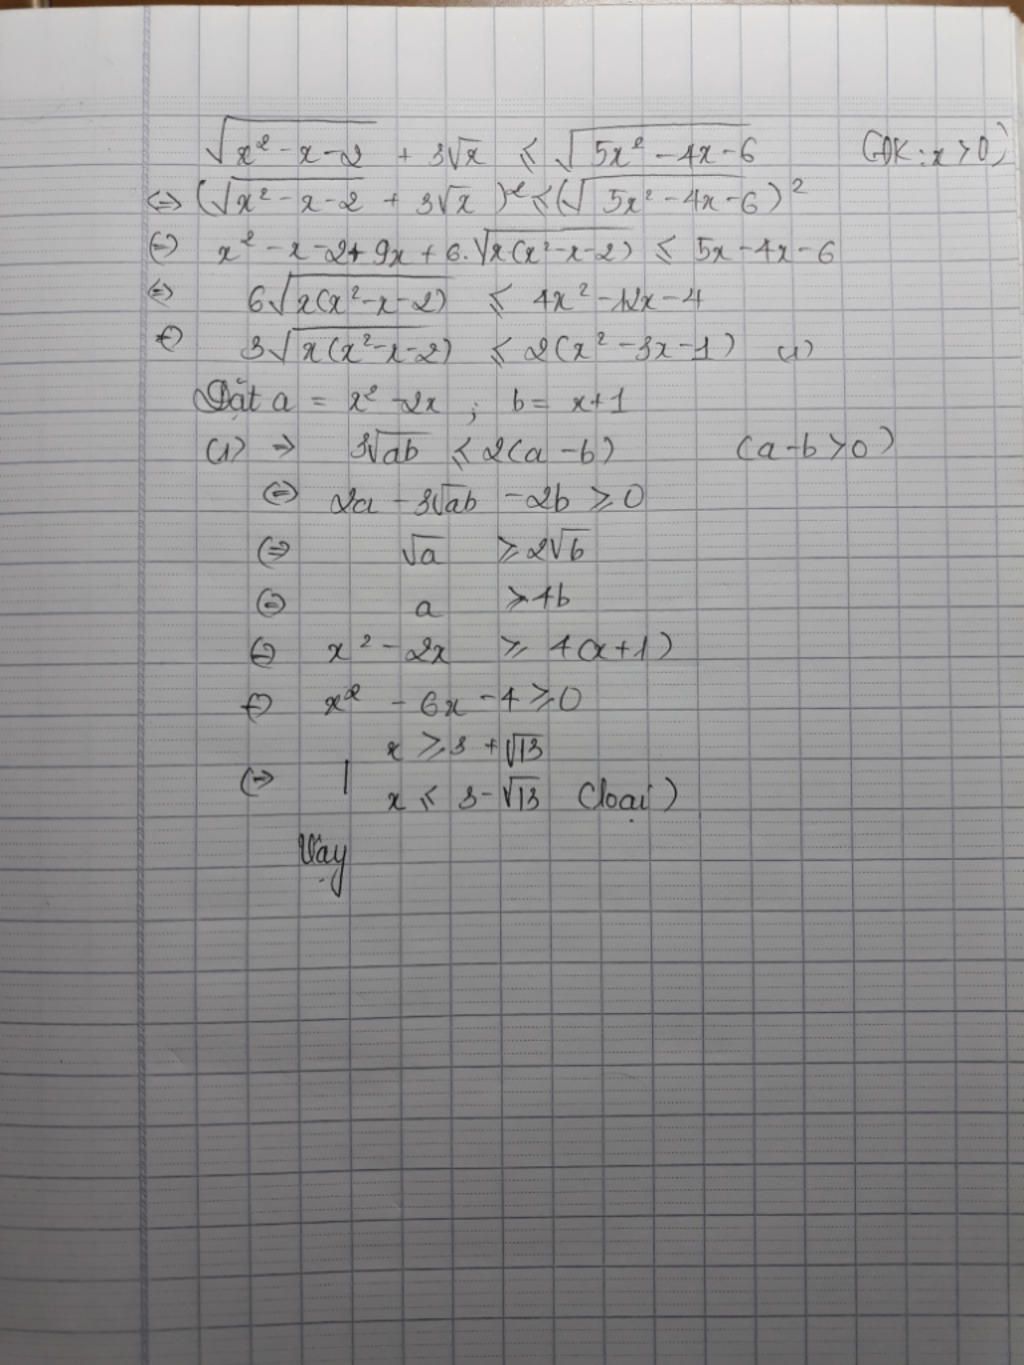 √(x² - x - 2) + 3√x ≤ √(5x² - 4x - 6) (ĐK: x > 0)
⇔ (√(x² - x - 2) + 3√x)² ≤ (√(5x² - 4x - 6))²
⇔ x² - x - 2 + 9x + 6.√(x(x² - x - 2)) ≤ 5x - 4x - 6
⇔ 6√(x(x² - x - 2)) ≤ 4x² - 12x - 4
⇔ 3√(x(x² - x - 2)) ≤ 2(x² - 3x - 1) (1)
Đặt a = x² - 2x ; b = x + 1
(1) ⇒ 3√(ab) ≤ 2(a - b) (a - b > 0)
⇔ 2a - 3√(ab) - 2b ≥ 0
⇔ √a ≥ 2√b
⇔ a ≥ 4b
⇔ x² - 2x ≥ 4(x + 1)
⇔ x² - 6x - 4 ≥ 0
x ≥ 3 + √13
⇔ | x ≤ 3 - √13 (loại)
Vậy